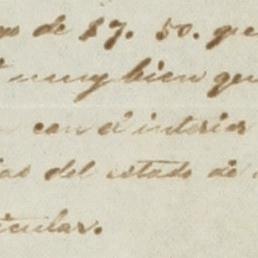 de $7. 50. que
muy bien que
con el interior
del estado de
icular.